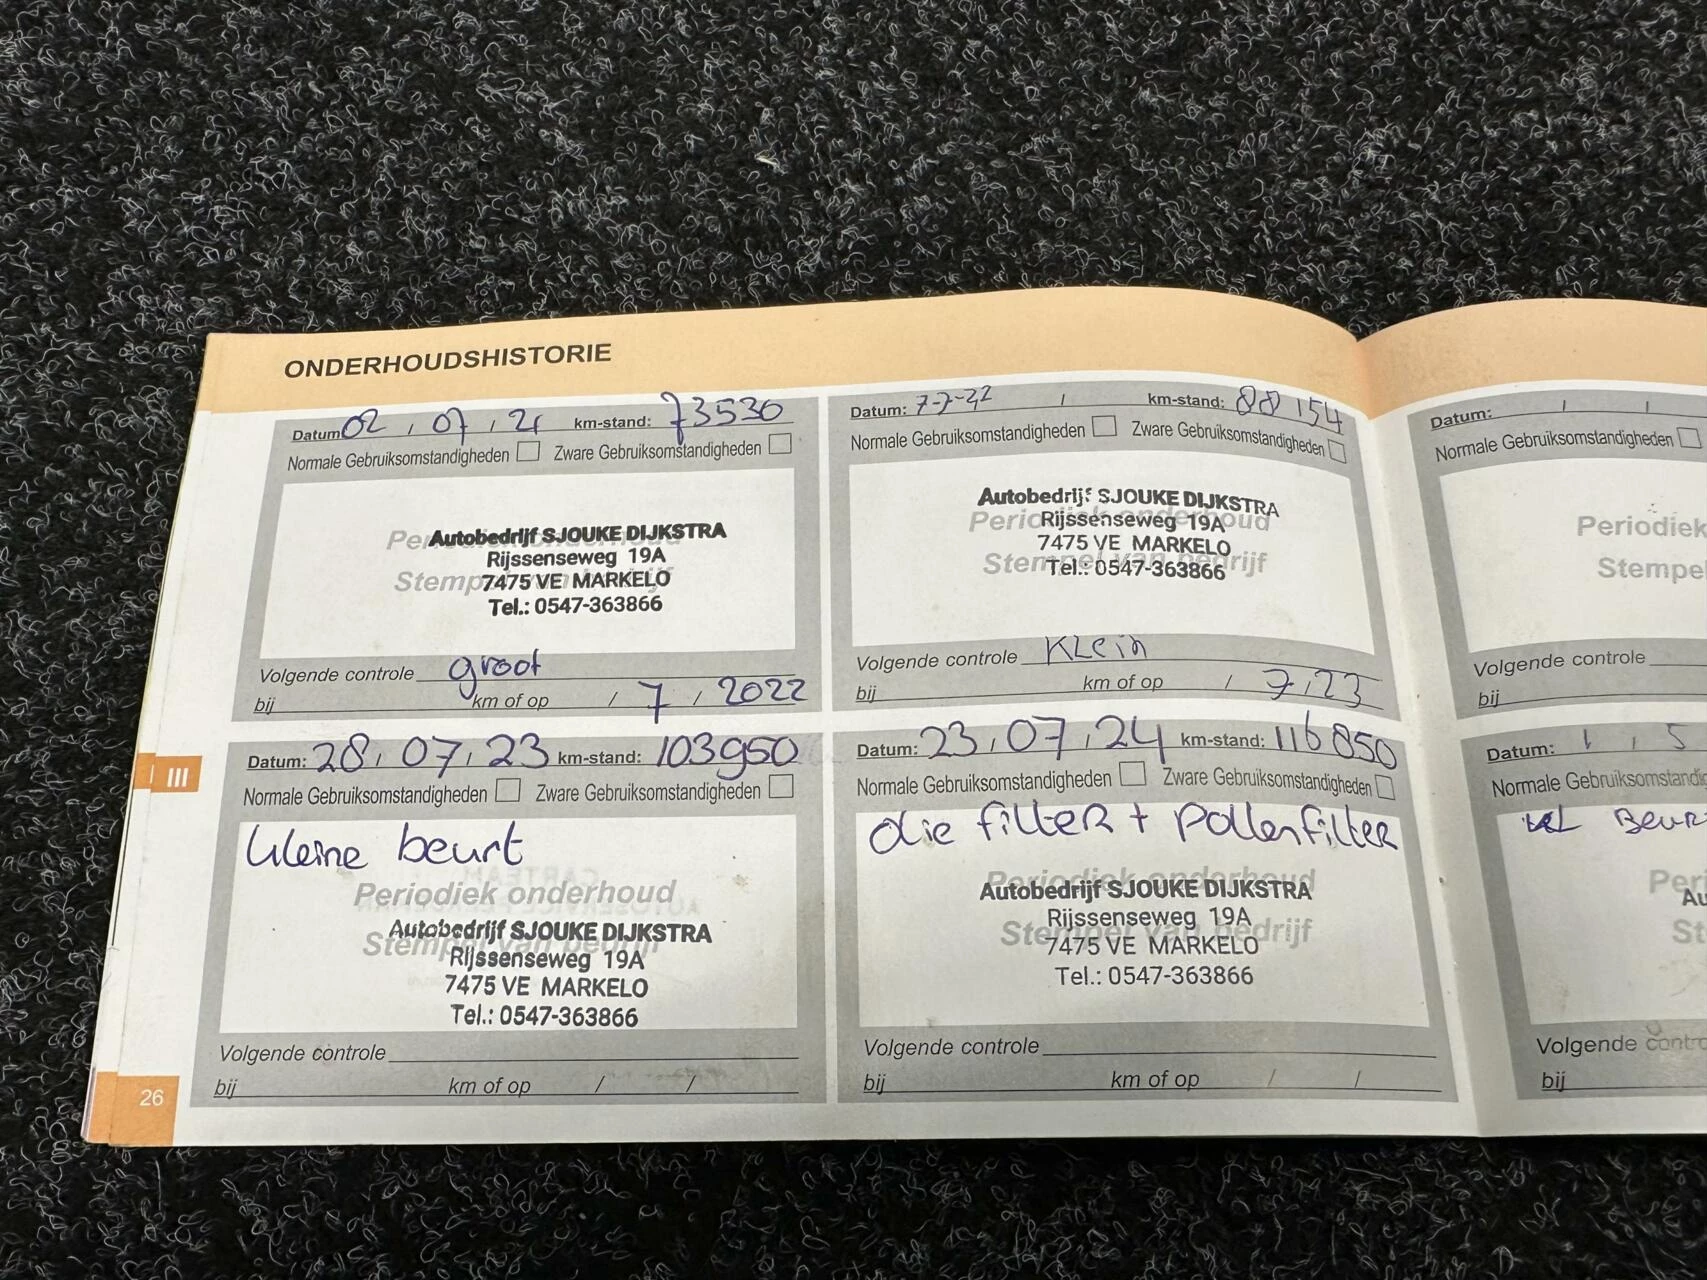 ONDERHOUDSHISTORIE
Datum: 02 / 07 / 21 km-stand: 73530
Normale Gebruiksomstandigheden Zware Gebruiksomstandigheden
Periodiek onderhoud
Stempel van bedrijf
Autobedrijf SJOUKE DIJKSTRA
Rijssenseweg 19A
7475 VE MARKELO
Tel.: 0547-363866
Volgende controle groot
bij km of op / 7 / 2022
Datum: 7-7-22 / km-stand: 88154
Normale Gebruiksomstandigheden Zware Gebruiksomstandigheden
Periodiek onderhoud
Stempel van bedrijf
Autobedrijf SJOUKE DIJKSTRA
Rijssenseweg 19A
7475 VE MARKELO
Tel.: 0547-363866
Volgende controle Klein
bij km of op / 7 / 23
Datum: 28 / 07 / 23 km-stand: 103950
Normale Gebruiksomstandigheden Zware Gebruiksomstandigheden
kleine beurt
Periodiek onderhoud
Stempel van bedrijf
Autobedrijf SJOUKE DIJKSTRA
Rijssenseweg 19A
7475 VE MARKELO
Tel.: 0547-363866
Volgende controle
bij km of op / /
Datum: 23 / 07 / 24 km-stand: 116850
Normale Gebruiksomstandigheden Zware Gebruiksomstandigheden
olie filter + pollenfilter
Periodiek onderhoud
Stempel van bedrijf
Autobedrijf SJOUKE DIJKSTRA
Rijssenseweg 19A
7475 VE MARKELO
Tel.: 0547-363866
Volgende controle
bij km of op / /
III
26
Datum: / /
Normale Gebruiksomstandigheden
Periodiek
Stempe
Volgende controle
bij
Datum: 1 / 5
Normale Gebruiksomstandig
Beur
Peri
Au
St
Volgende contro
bij